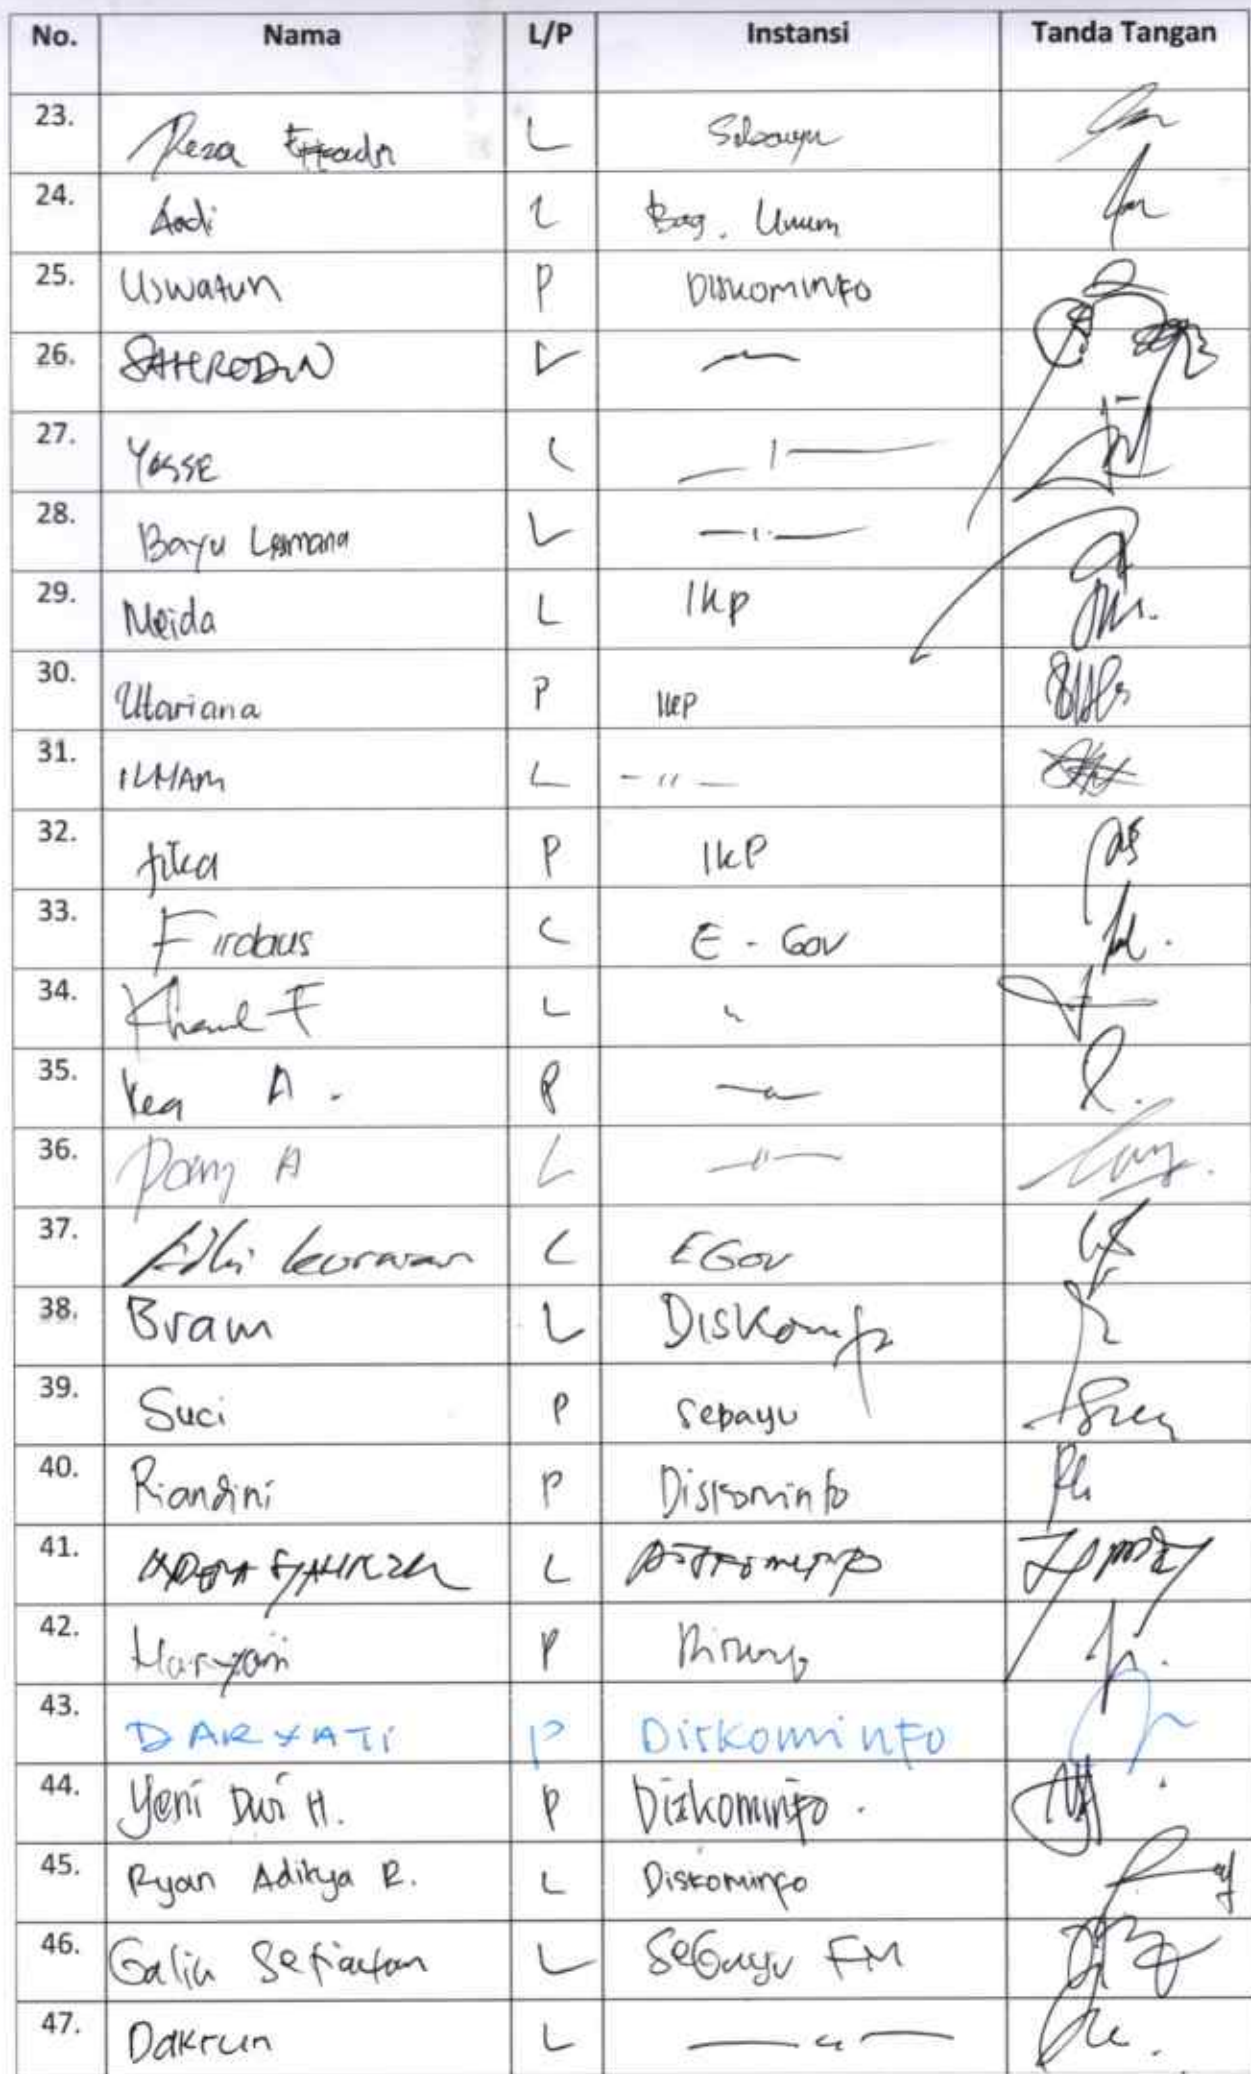 No. Nama L/P Instansi Tanda Tangan
23. Reza L
24. Andi L Bag. Umum
25. Uswatun P Diskominfo
26. SAHRODIN L
27. Yosse L
28. Bayu Lesmana L
29. Meida L IKP
30. Utariana P IKP
31. ILHAM L - " -
32. Jika P IKP
33. Firdaus L E - Gov
34. F L "
35. A. P
36. A L - " -
37. Adhi kurniawan L E Gov
38. Bram L Diskominfo
39. Suci P Sebayu
40. Riandini P Diskominfo
41. L Diskominfo
42. Haryani P
43. DARYATI P Diskominfo
44. Yeni Dwi H. P Diskominfo.
45. Ryan Aditya R. L Diskominfo
46. Galih Setiawan L Sebayu FM
47. Dakrun L — " —